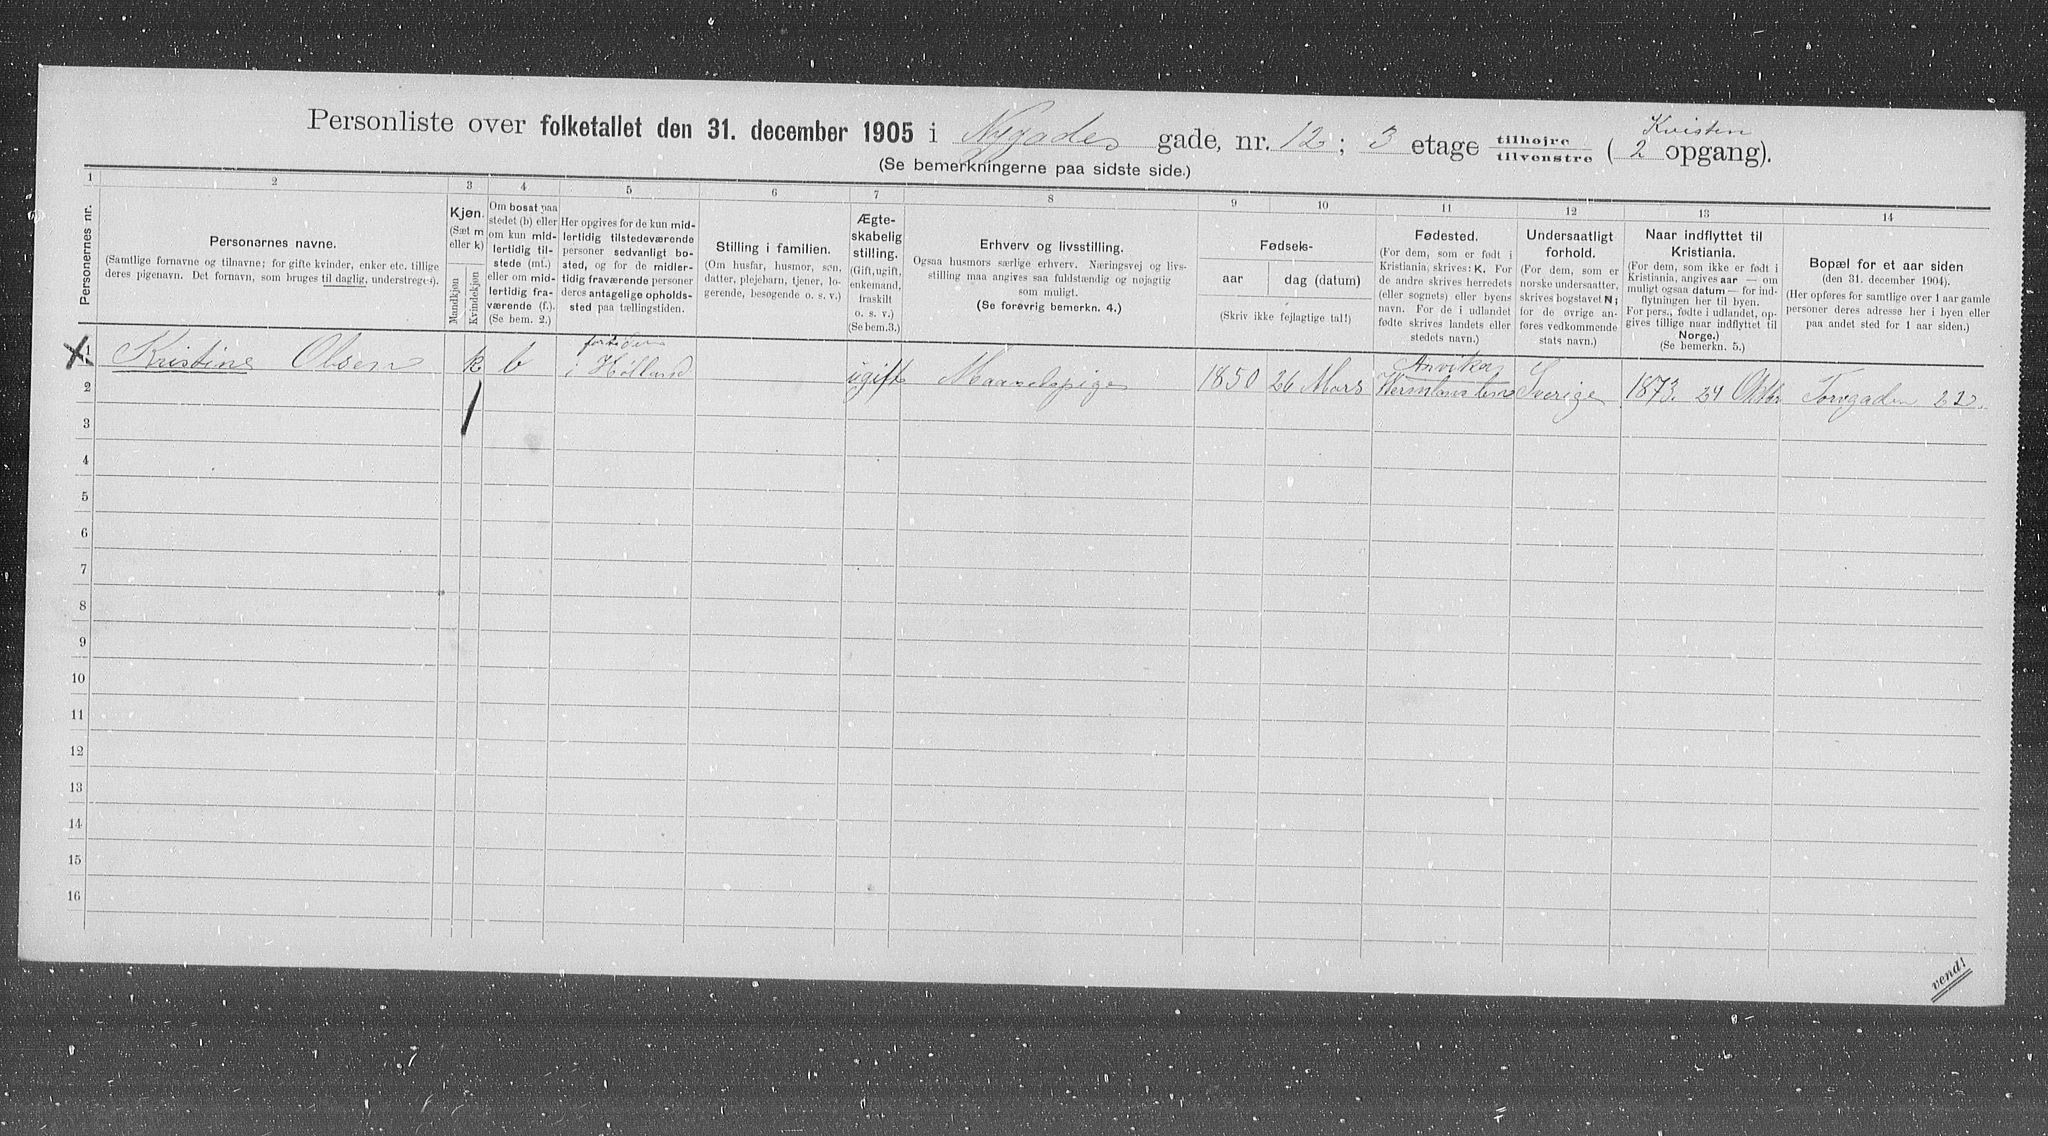 Personliste over folketallet den 31. december 1905 i Nygades gade, nr. 12; 3 etage tilhøjre tilvenstre ( Kvisten 2 opgang).
(Se bemerkningerne paa sidste side.)
1 2 3 4 5 6 7 8 9 10 11 12 13 14
Personernes nr.
Personernes navne.
(Samtlige fornavne og tilnavne; for gifte kvinder, enker etc. tillige
deres pigenavn. Det fornavn, som bruges til daglig, understreges).
Kjøn.
(Sæt m
eller k)
Mandkjøn
Kvindekjøn
Om bosat paa
stedet (b) eller
om kun mid-
lertidig til-
stede (mt.)
eller om mid-
lertidig fra-
værende (f.).
(Se bem. 2.)
Her opgives for de kun mid-
lertidig tilstedeværende
personer sedvanligt bo-
sted, og for de midler-
tidig fraværende personer
deres antagelige opholds-
sted paa tællingstiden.
Stilling i familien.
(Om husfar, husmor, søn,
datter, plejebarn, tjener, lo-
gerende, besøgende o. s. v.)
Ægte-
skabelig
stilling.
(Gift, ugift,
enkemand,
fraskilt
o. s. v.)
(Se bem. 3.)
Erhverv og livsstilling.
Ogsaa husmors særlige erhverv. Næringsvej og livs-
stilling maa angives saa fuldstændig og nøjagtig
som muligt.
(Se forøvrig bemerkn. 4.)
Fødsels-
aar
dag (datum)
(Skriv ikke fejlagtige tal!)
Fødested.
(For dem, som er født i
Kristiania, skrives: K. For
de andre skrives herredets
(eller sognets) eller byens
navn. For de i udlandet
fødte skrives landets eller
stedets navn.)
Undersaatligt
forhold.
(For dem, som er
norske undersaatter,
skrives bogstavet N;
for de øvrige an-
føres vedkommende
stats navn.)
Naar indflyttet til
Kristiania.
(For dem, som ikke er født i
Kristiania, angives aar — om
muligt ogsaa datum — for ind-
flytningen her til byen.
For pers., fødte i udlandet, op-
gives tillige naar indflyttet til
Norge.)
(Se bemerkn. 5.)
Bopæl for et aar siden
(den 31. december 1904).
(Her opføres for samtlige over 1 aar gamle
personer deres adresse her i byen eller
paa andet sted for 1 aar siden.)
1 Kristine Olsen k b i Holland ugift 1850 26 Mars Arvika Sverige 1873. 24 Oktbr Torvgaden 22.
2
3
4
5
6
7
8
9
10
11
12
13
14
15
16
vend!